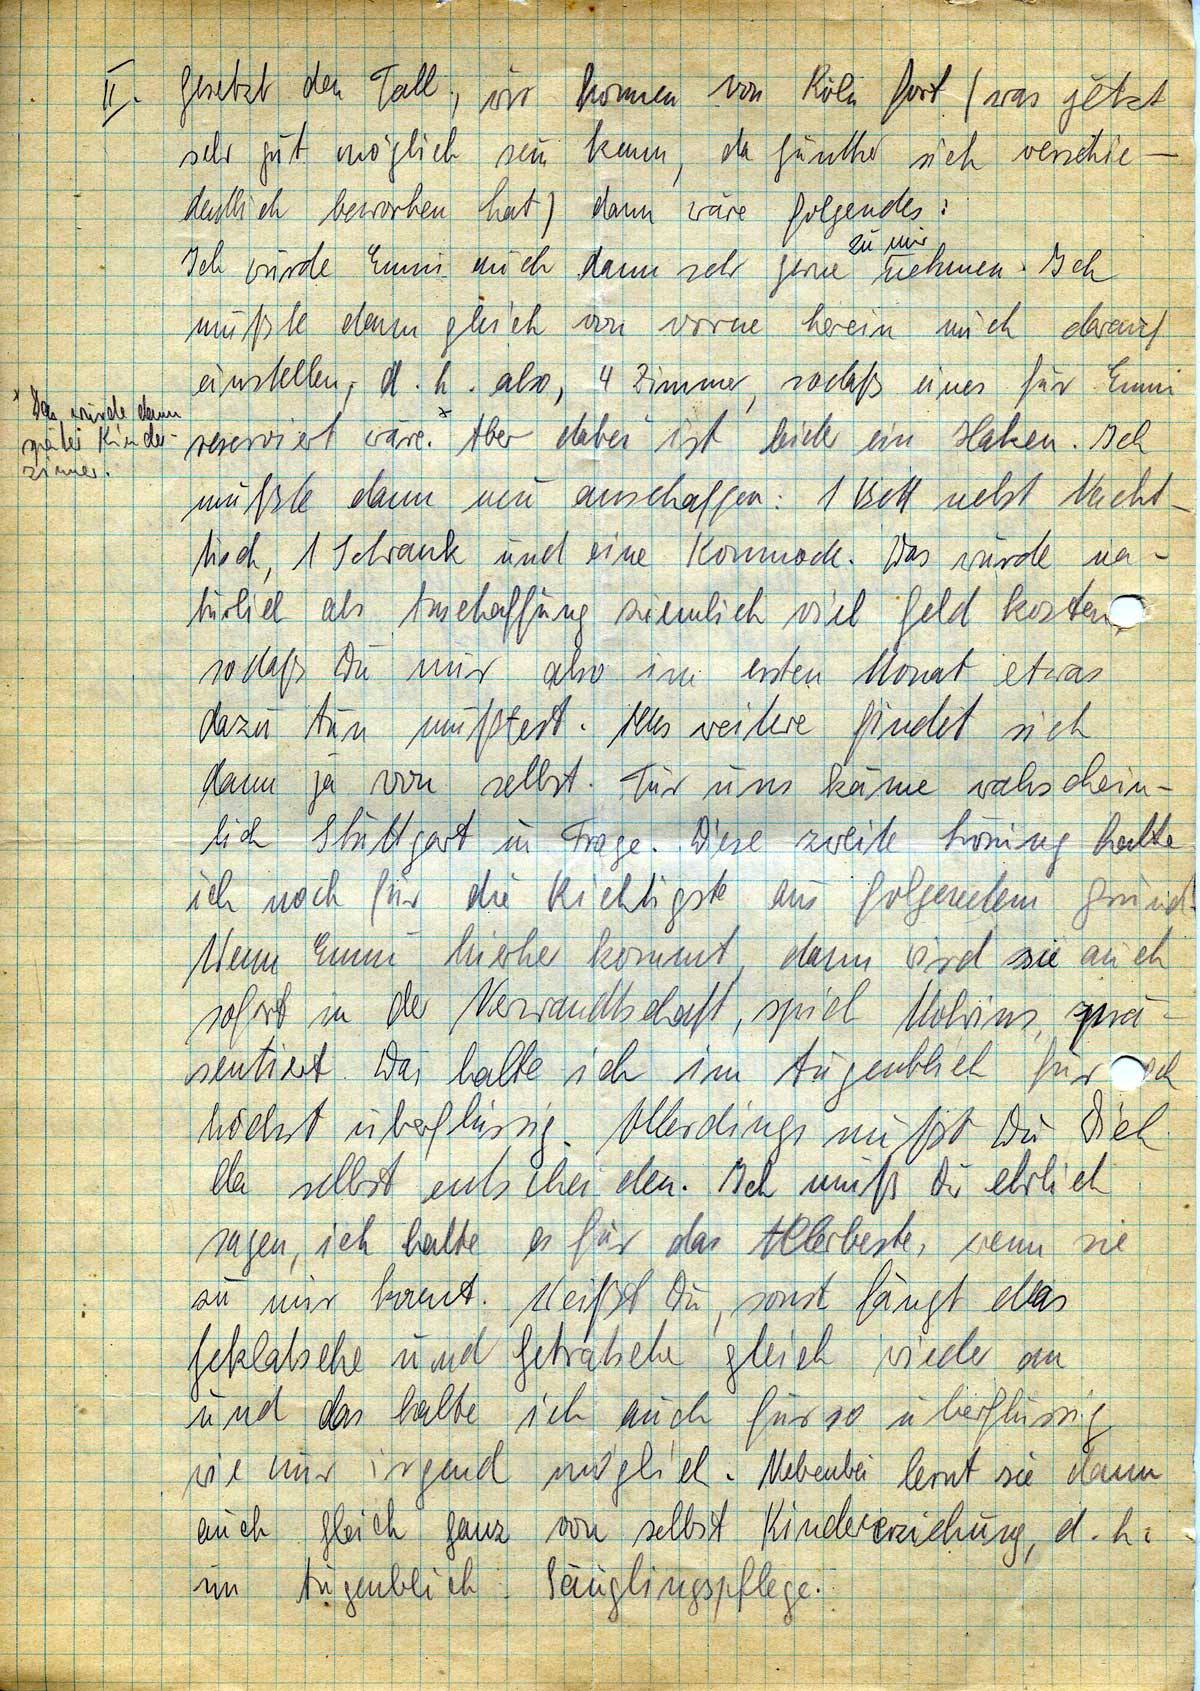 II. Gesetzt den Fall, wir kommen von Köln fort (was jetzt
sehr gut möglich sein kann, da Günther sich verschie-
dentlich beworben hat) dann wäre folgendes:
Ich würde Emmi auch dann sehr gerne zu mir nehmen. Ich
müßte dann gleich von vorne herein mich darauf
einstellen, d. h. also, 4 Zimmer, sodaß eines für Emmi
reserviert wäre.* Aber dabei ist leider ein Haken. Ich
* Das würde dann
später Kinder-
zimmer.
müßte dann neu anschaffen: 1 Bett nebst Nacht-
tisch, 1 Schrank und eine Kommode. Das würde na-
türlich als Anschaffung ziemlich viel Geld kosten,
sodaß Du mir also im ersten Monat etwas
dazu tun müßtest. Alles weitere findet sich
dann ja von selbst. Für uns käme wahrschein-
lich Stuttgart in Frage. Diese zweite Lösung halte
ich noch für die Richtigste aus folgendem Grund.
Wenn Emmi hierher kommt, dann wird sie auch
sofort in der Verwandtschaft, sprich prä-
sentiert. Das halte ich im Augenblick für
höchst überflüssig. Allerdings mußt Du Dich
da selbst entscheiden. Ich muß Dir ehrlich
sagen, ich halte es für das Allerbeste, wenn sie
zu mir kommt. Weißt Du, sonst fängt das
Geklatsche und Getratsche gleich wieder an
und das halte ich auch für so überflüssig
wie nur irgend möglich. Nebenbei lernt sie dann
auch gleich ganz von selbst Kindererziehung, d. h.
im Augenblick Säuglingspflege.